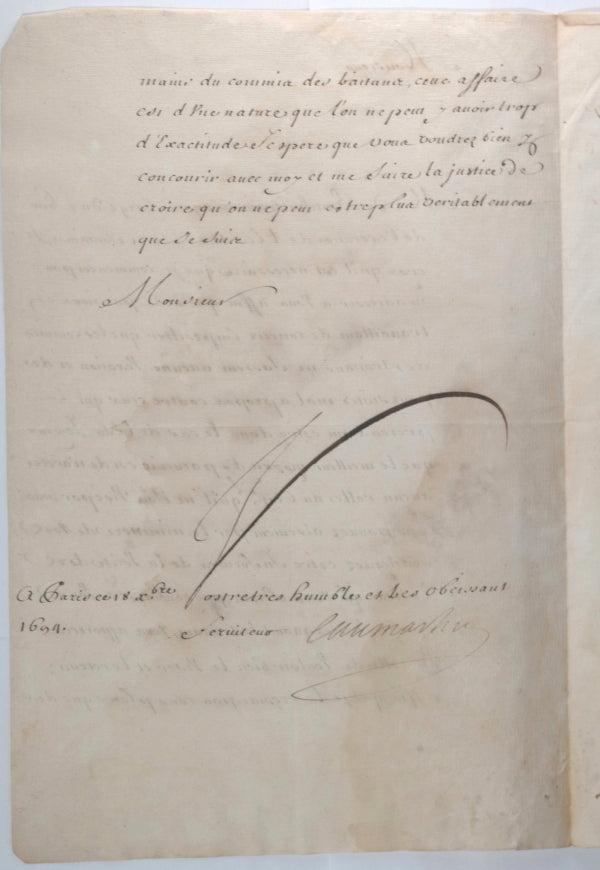 mains du commis des bastans, cette affaire
est d'Vne nature que l'on ne peut y auoir trop
d'Exactitude J'espere que vous voudrez bien y
concourir auec moy et me faire la justice de
croire qu'on ne peut estre plus veritablement
que Je suis
Monsieur
A Paris ce 18 xbre
1694.
Vostre tres humble et tres obeissant
Seruiteur Caumartin